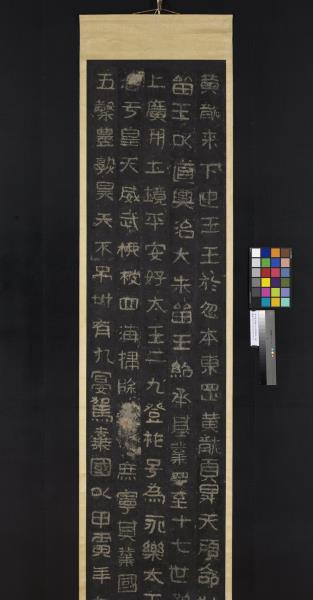 黃龍來下迎王王於忽本東罡黃龍頁昇天頋命
留王以道興治大朱留王紹承基業遝至十七世
上廣開土境平安好太王二九登祚号為永樂太
洽亏皇天威武振被四海掃除庶寧其業國
五穀豊熟昊天不弔卅有九宴駕棄國以甲寅年